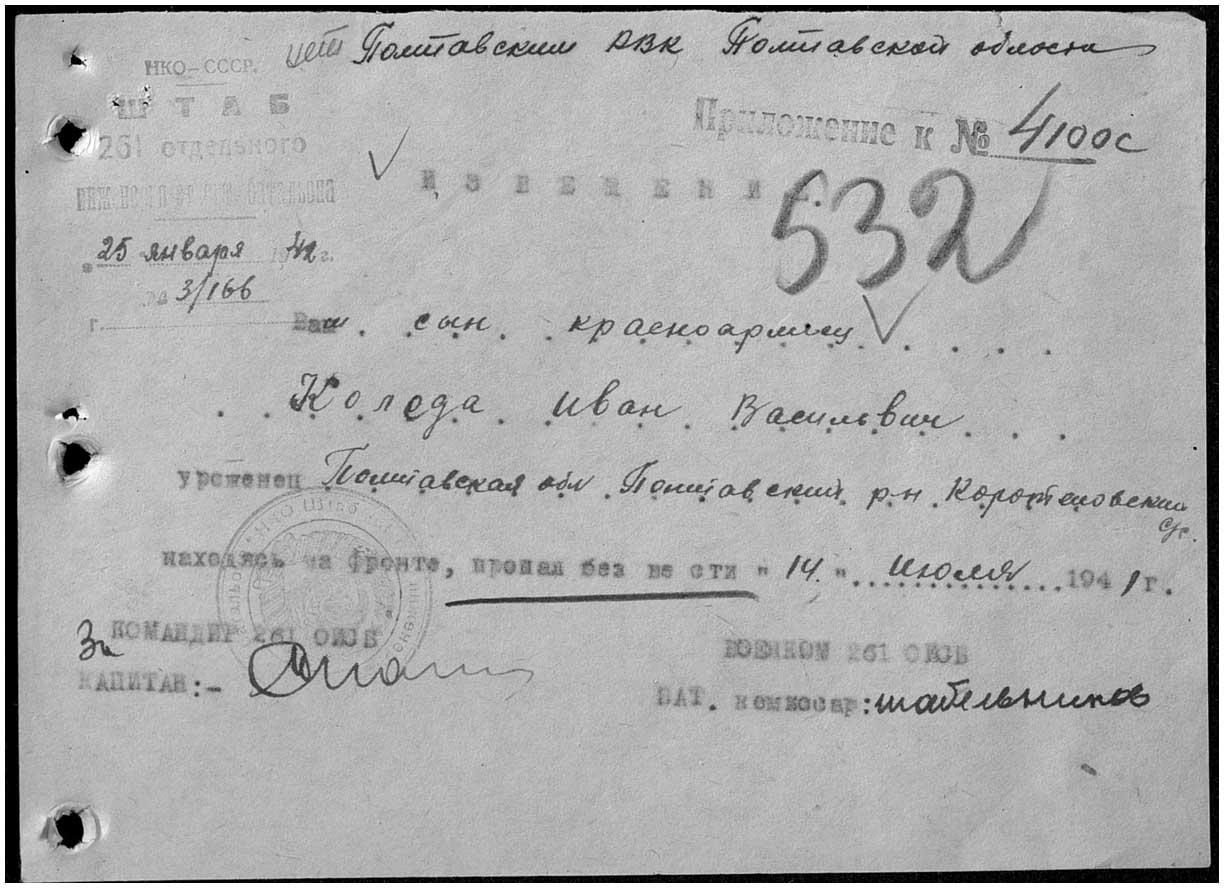 Полтавским РВК Полтавской области
НКО-СССР.
ШТАБ
261 отдельного
батальона
Приложение к № 4100с
ИЗВЕЩЕНИЕ.
532
"25 января 1942 г.
№ 3/166
г.
Ваш сын красноармеец
Коляда Иван Васильевич
уроженец Полтавская обл Полтавский р-н
с/с.
находясь на фронте, пропал без вести "14." июля 1941 г.
За КОМАНДИР 261 ОИСБ
ВОЕНКОМ 261 ОИСБ
КАПИТАН:-
БАТ. комиссар: Шабельников